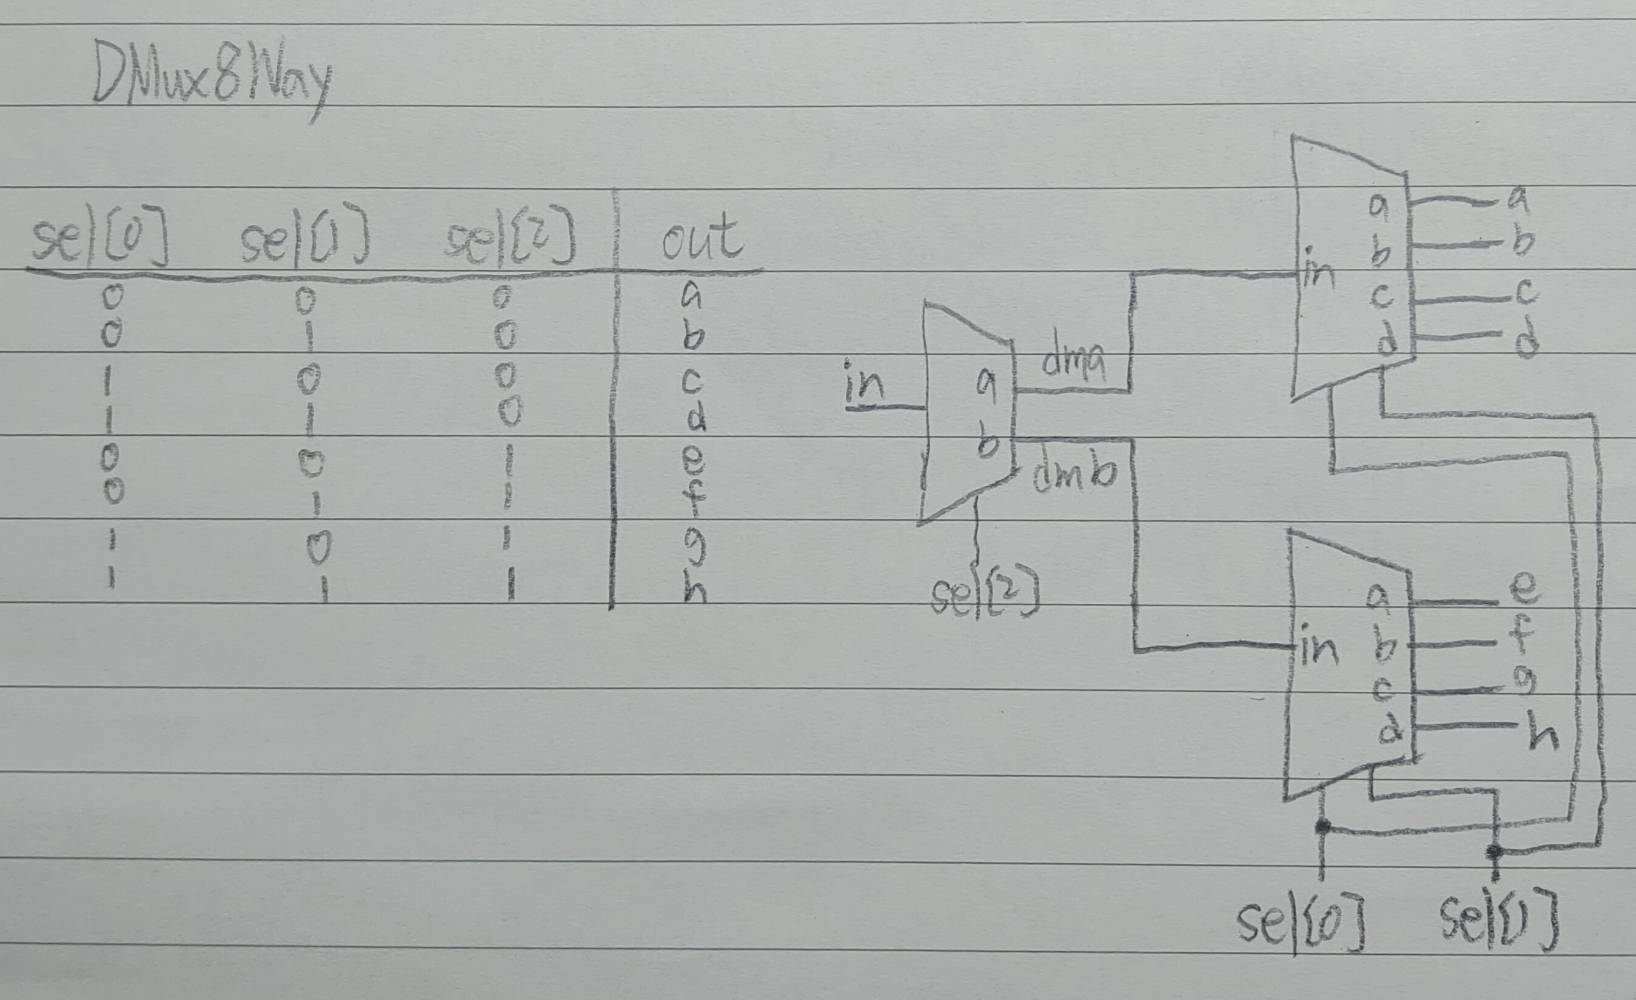 DMux8Way
sel[0] sel[1] sel[2] out
0 0 0 a
0 1 0 b
1 0 0 c
1 1 0 d
0 0 1 e
0 1 1 f
1 0 1 g
1 1 1 h
in
a
b
dma
dmb
sel[2]
in
a
b
c
d
a
b
c
d
in
a
b
c
d
e
f
g
h
sel[0] sel[1]